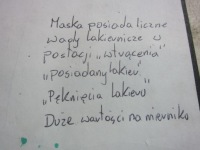 Maska posiada liczne
wady lakiernicze w
postaci „wtrącenia"
„posiadany lakier"
„Pęknięcia lakieru
Duże wartości na mierniku